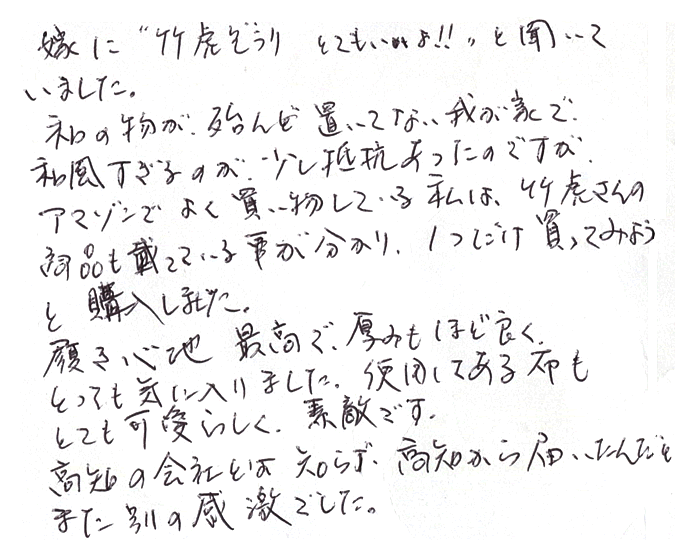 嫁に"竹虎ぞうり とてもいいよ!!"と聞いて
いました。
和の物が、殆んど置いてない我が家で、
和風すぎるのが、少し抵抗あったのですが、
アマゾンでよく買い物している私は、竹虎さんの
商品も載っている事が分かり、1つだけ買ってみよう
と購入しました。
履き心地 最高で、厚みもほど良く、
とっても気に入りました。使用してある布も
とても可愛らしく、素敵です。
高知の会社とは知らず、高知から届いたんだと
また別の感激でした。